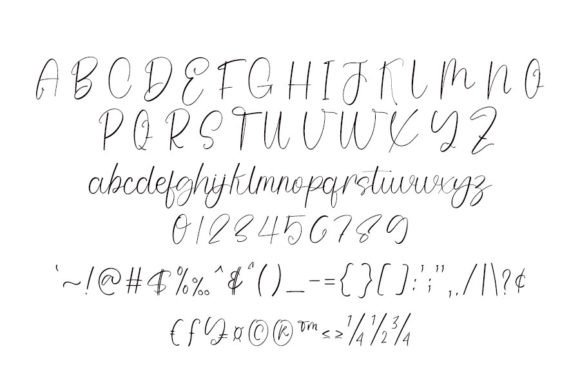 A B C D E F G H I J K L M N O
P Q R S T U V W X Y Z
abcdefghijklmnopqrstuvwxyz
0123456789
`~!@#$%‰^&^()_-={}[]:';",./|\?¢
€ƒ¥¤©®™≤≥¼½¾